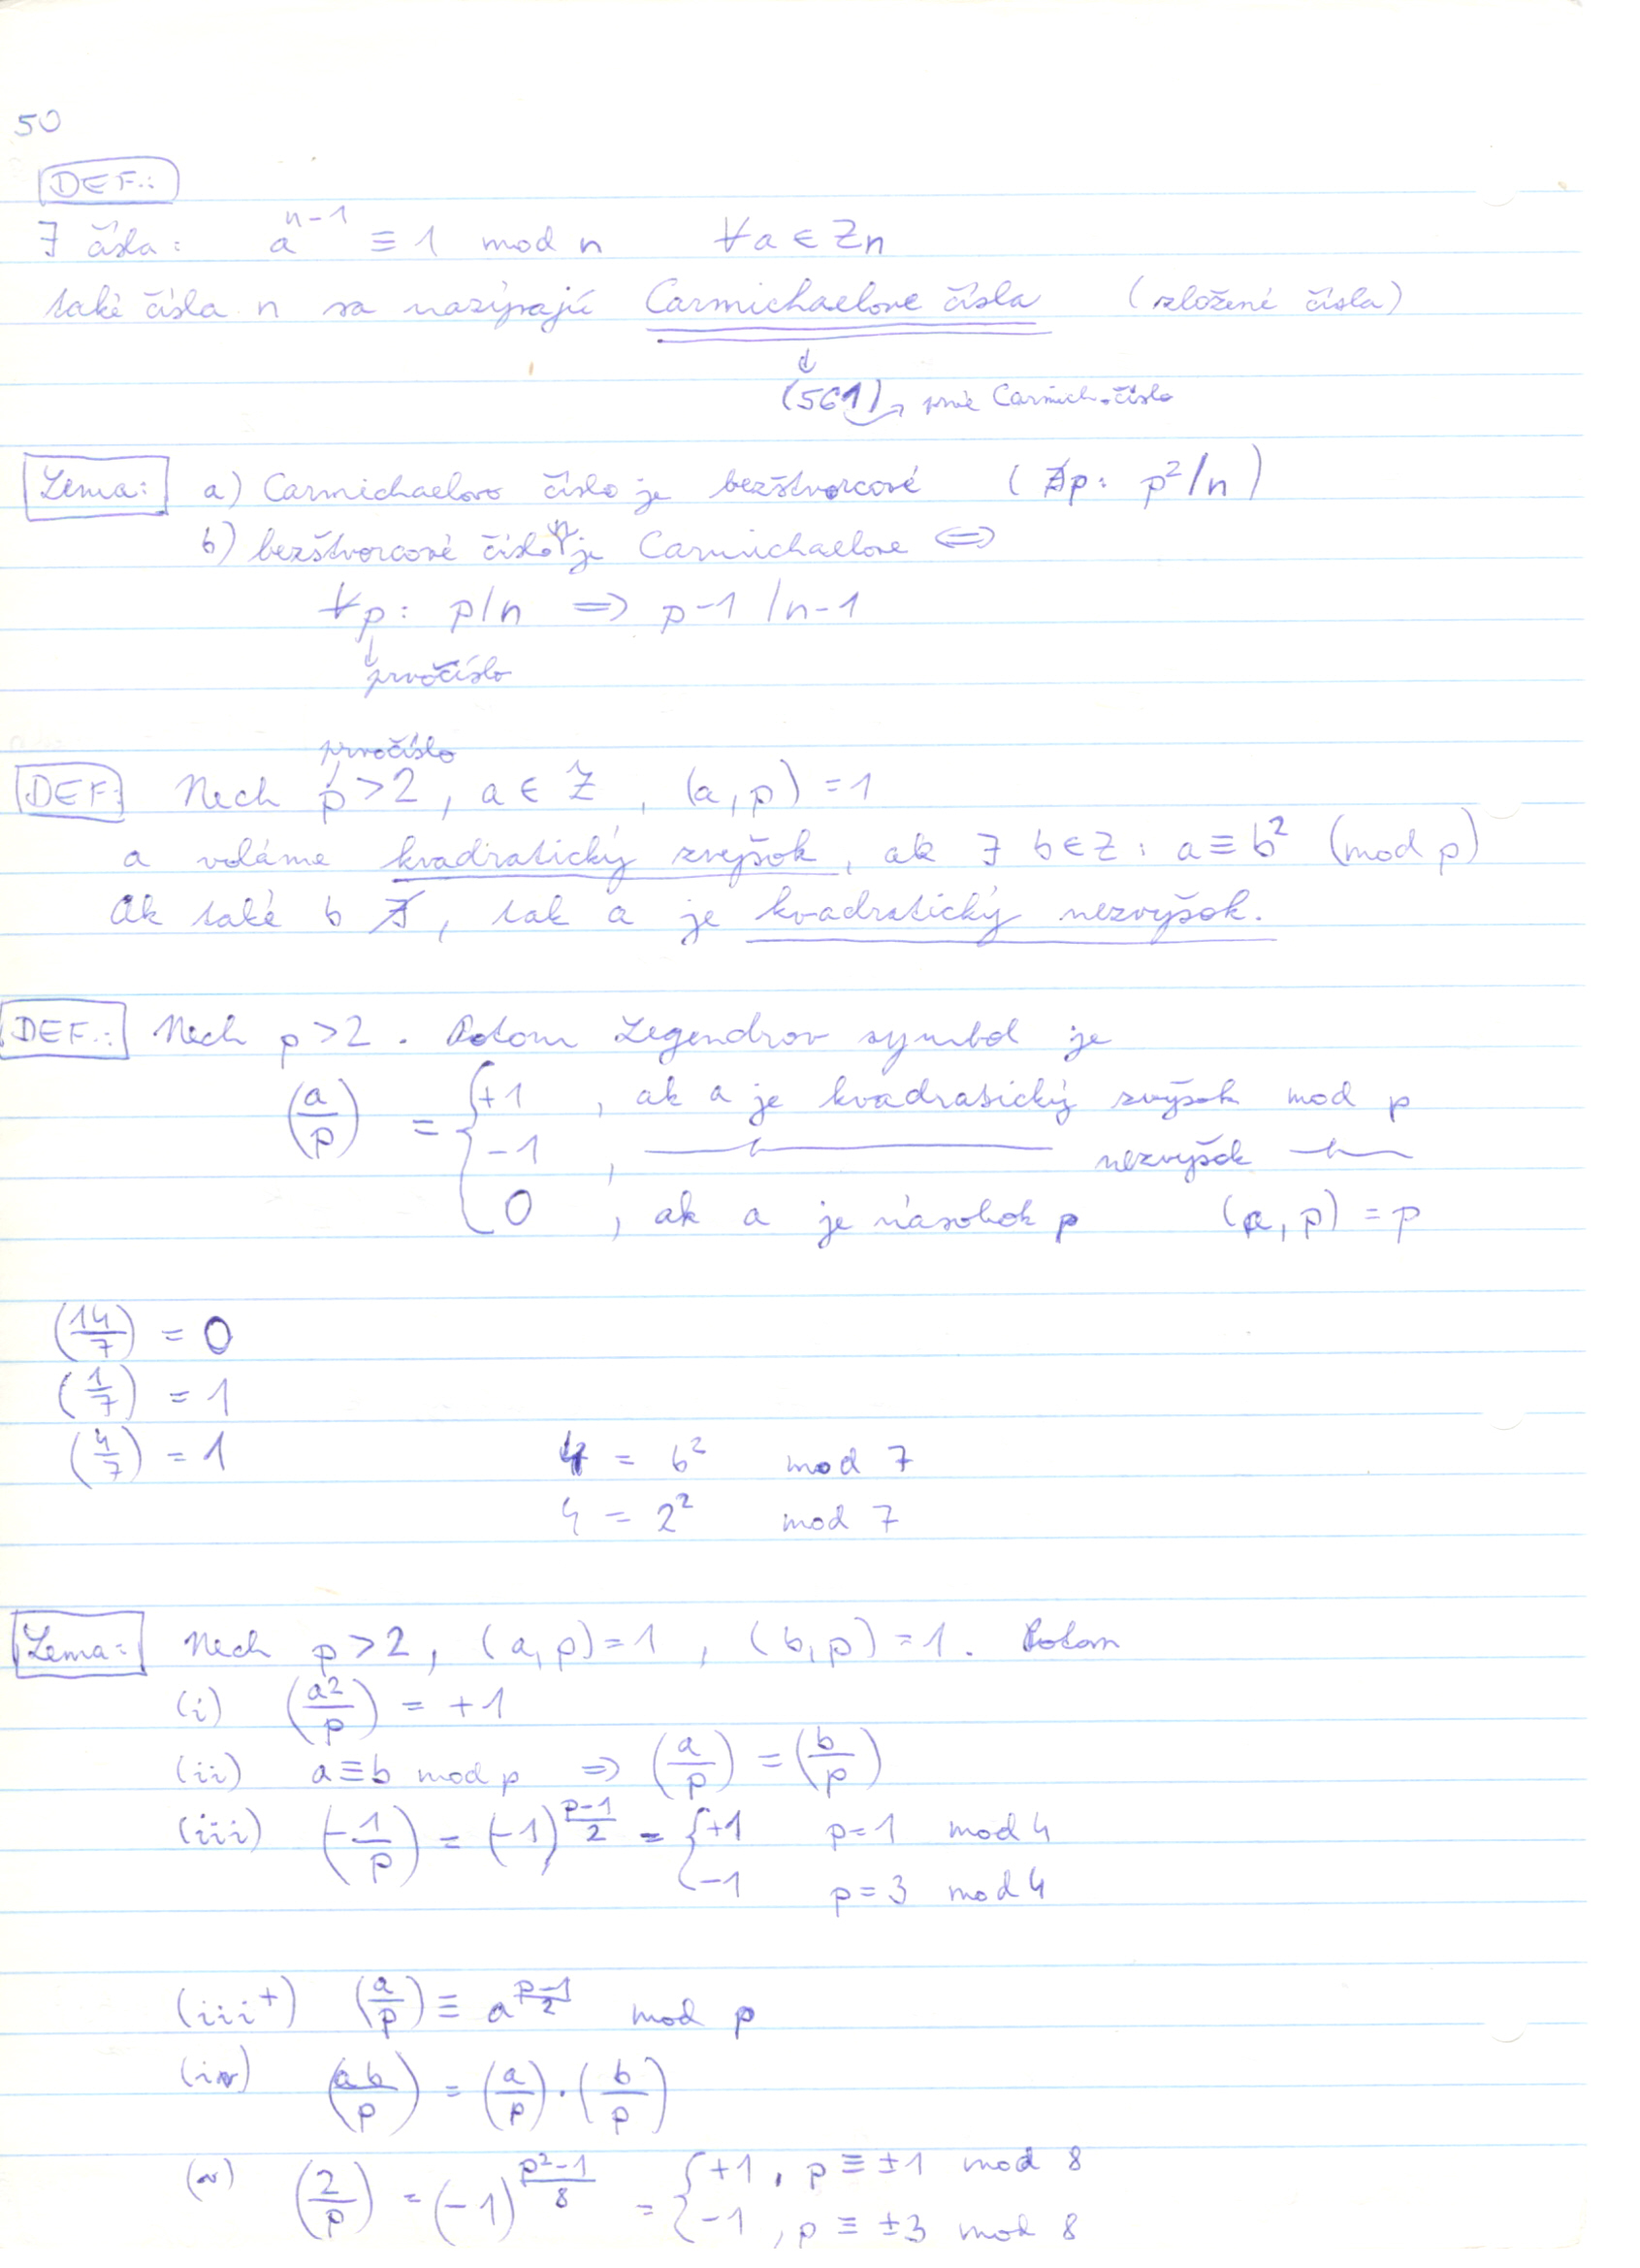 50
DEF.:
∃ čísla: a^{n-1} ≡ 1 mod n ∀a ∈ Zn
také čísla n sa nazývajú Carmichaelove čísla (zložené čísla)
↓
(561) → prvé Carmich. číslo
Lema: a) Carmichaelovo číslo je bezštvorcové (∄p: p²/n)
b) bezštvorcové číslo n je Carmichaelove ⇔
∀p: p/n ⇒ p-1 /n-1
↓
prvočíslo
prvočíslo
DEF: Nech p>2, a ∈ Z, (a,p)=1
a voláme kvadratický zvyšok, ak ∃ b∈Z: a≡b² (mod p)
Ak také b ∄, tak a je kvadratický nezvyšok.
DEF.: Nech p>2. Potom Legendrov symbol je
(a/p) = { +1, ak a je kvadratický zvyšok mod p
-1, —〃— nezvyšok —〃—
0, ak a je násobok p (a,p)=p
(14/7) = 0
(1/7) = 1
(4/7) = 1 4 = b² mod 7
4 = 2² mod 7
Lema: Nech p>2, (a,p)=1, (b,p)=1. Potom
(i) (a²/p) = +1
(ii) a≡b mod p ⇒ (a/p) = (b/p)
(iii) (-1/p) = (-1)^{(p-1)/2} = { +1 p=1 mod 4
-1 p=3 mod 4
(iii⁺) (a/p) ≡ a^{(p-1)/2} mod p
(iv) (ab/p) = (a/p)·(b/p)
(v) (2/p) = (-1)^{(p²-1)/8} = { +1, p ≡ ±1 mod 8
-1, p ≡ ±3 mod 8